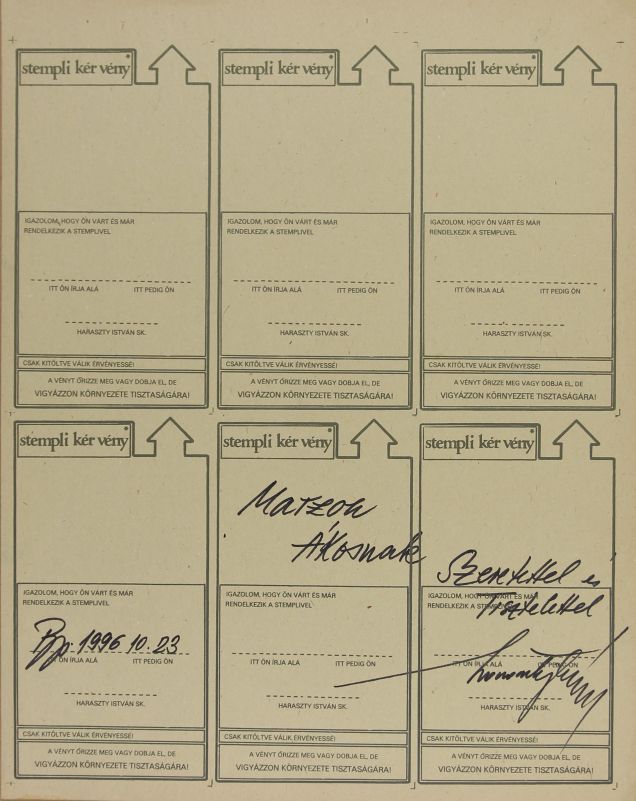 stempli kér vény
IGAZOLOM, HOGY ÖN VÁRT ÉS MÁR
RENDELKEZIK A STEMPLIVEL
ITT ÖN ÍRJA ALÁ ITT PEDIG ÖN
HARASZTY ISTVÁN SK.
CSAK KITÖLTVE VÁLIK ÉRVÉNYESSÉ!
A VÉNYT ŐRIZZE MEG VAGY DOBJA EL, DE
VIGYÁZZON KÖRNYEZETE TISZTASÁGÁRA!
stempli kér vény
IGAZOLOM, HOGY ÖN VÁRT ÉS MÁR
RENDELKEZIK A STEMPLIVEL
ITT ÖN ÍRJA ALÁ ITT PEDIG ÖN
HARASZTY ISTVÁN SK.
CSAK KITÖLTVE VÁLIK ÉRVÉNYESSÉ!
A VÉNYT ŐRIZZE MEG VAGY DOBJA EL, DE
VIGYÁZZON KÖRNYEZETE TISZTASÁGÁRA!
stempli kér vény
IGAZOLOM, HOGY ÖN VÁRT ÉS MÁR
RENDELKEZIK A STEMPLIVEL
ITT ÖN ÍRJA ALÁ ITT PEDIG ÖN
HARASZTY ISTVÁN SK.
CSAK KITÖLTVE VÁLIK ÉRVÉNYESSÉ!
A VÉNYT ŐRIZZE MEG VAGY DOBJA EL, DE
VIGYÁZZON KÖRNYEZETE TISZTASÁGÁRA!
stempli kér vény
IGAZOLOM, HOGY ÖN VÁRT ÉS MÁR
RENDELKEZIK A STEMPLIVEL
Bp. 1996 10. 23
ITT ÖN ÍRJA ALÁ ITT PEDIG ÖN
HARASZTY ISTVÁN SK.
CSAK KITÖLTVE VÁLIK ÉRVÉNYESSÉ!
A VÉNYT ŐRIZZE MEG VAGY DOBJA EL, DE
VIGYÁZZON KÖRNYEZETE TISZTASÁGÁRA!
stempli kér vény
Matzon
Ákosnak
IGAZOLOM, HOGY ÖN VÁRT ÉS MÁR
RENDELKEZIK A STEMPLIVEL
ITT ÖN ÍRJA ALÁ ITT PEDIG ÖN
HARASZTY ISTVÁN SK.
CSAK KITÖLTVE VÁLIK ÉRVÉNYESSÉ!
A VÉNYT ŐRIZZE MEG VAGY DOBJA EL, DE
VIGYÁZZON KÖRNYEZETE TISZTASÁGÁRA!
stempli kér vény
Szeretettel és
IGAZOLOM, HOGY ÖN VÁRT ÉS MÁR
RENDELKEZIK A STEMPLIVEL
Tisztelettel
ITT ÖN ÍRJA ALÁ ITT PEDIG ÖN
HARASZTY ISTVÁN SK.
CSAK KITÖLTVE VÁLIK ÉRVÉNYESSÉ!
A VÉNYT ŐRIZZE MEG VAGY DOBJA EL, DE
VIGYÁZZON KÖRNYEZETE TISZTASÁGÁRA!